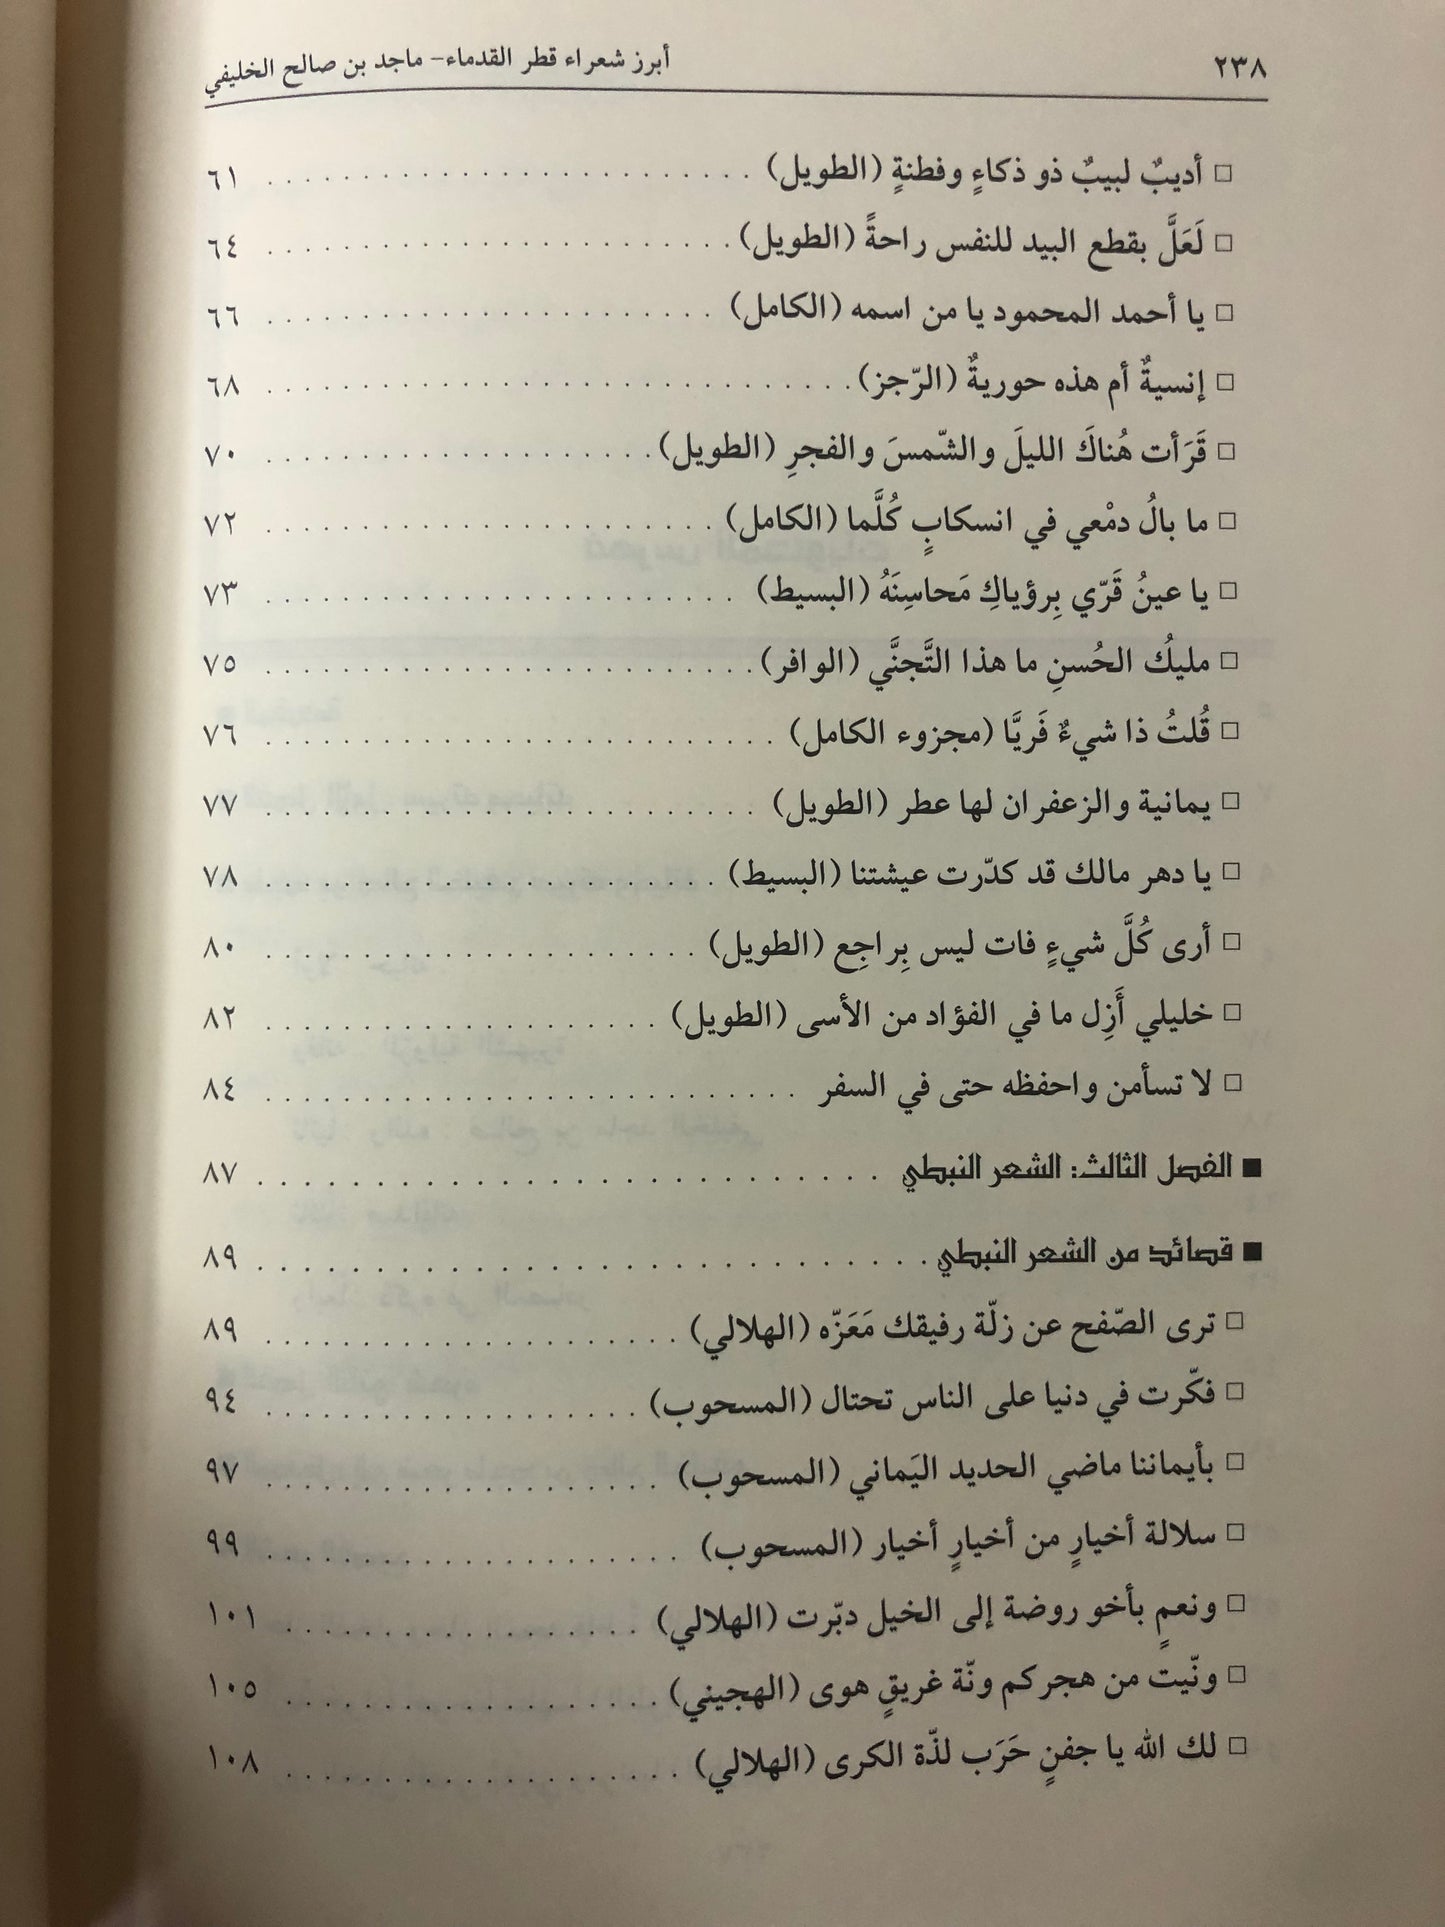 ٢٣٨ أبرز شعراء قطر القدماء- ماجد بن صالح الخليفي
□ أديبٌ لبيبٌ ذو ذكاءٍ وفطنةٍ (الطويل) ٦١
□ لَعَلَّ بقطع البيد للنفس راحةً (الطويل) ٦٤
□ يا أحمد المحمود يا من اسمه (الكامل) ٦٦
□ إنسيةٌ أم هذه حوريةٌ (الرّجز) ٦٨
□ قَرَأت هُناكَ الليلَ والشّمسَ والفجرِ (الطويل) ٧٠
□ ما بالُ دمْعي في انسكابٍ كُلَّما (الكامل) ٧٢
□ يا عينُ قَرّي بِرؤياكِ مَحاسِنَهُ (البسيط) ٧٣
□ مليكُ الحُسنِ ما هذا التَّجنَّي (الوافر) ٧٥
□ قُلتُ ذا شيءٌ فَريَّا (مجزوء الكامل) ٧٦
□ يمانية والزعفران لها عطر (الطويل) ٧٧
□ يا دهر مالك قد كدّرت عيشتنا (البسيط) ٧٨
□ أرى كُلَّ شيءٍ فات ليس بِراجِع (الطويل) ٨٠
□ خليلي أَزِل ما في الفؤاد من الأسى (الطويل) ٨٢
□ لا تسأمن واحفظه حتى في السفر ٨٤
■ الفصل الثالث: الشعر النبطي ٨٧
■ قصائد من الشعر النبطي ٨٩
□ ترى الصّفح عن زلّة رفيقك مَعَزّه (الهلالي) ٨٩
□ فكّرت في دنيا على الناس تحتال (المسحوب) ٩٤
□ بأيماننا ماضي الحديد اليَماني (المسحوب) ٩٧
□ سلالة أخيارٍ من أخيارٍ أخيار (المسحوب) ٩٩
□ ونعمٍ بأخو روضة إلى الخيل دبّرت (الهلالي) ١٠١
□ ونّيت من هجركم ونّة غريقٍ هوى (الهجيني) ١٠٥
□ لك الله يا جفنٍ حَرَب لذّة الكرى (الهلالي) ١٠٨